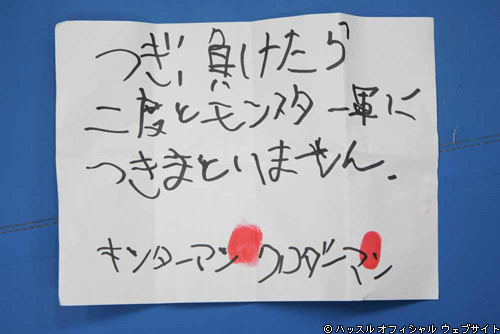 つぎ、負けたら
二度とモンスター軍に
つきまといません.
キンターマン クロダーマン
© ハッスル オフィシャル ウェブサイト